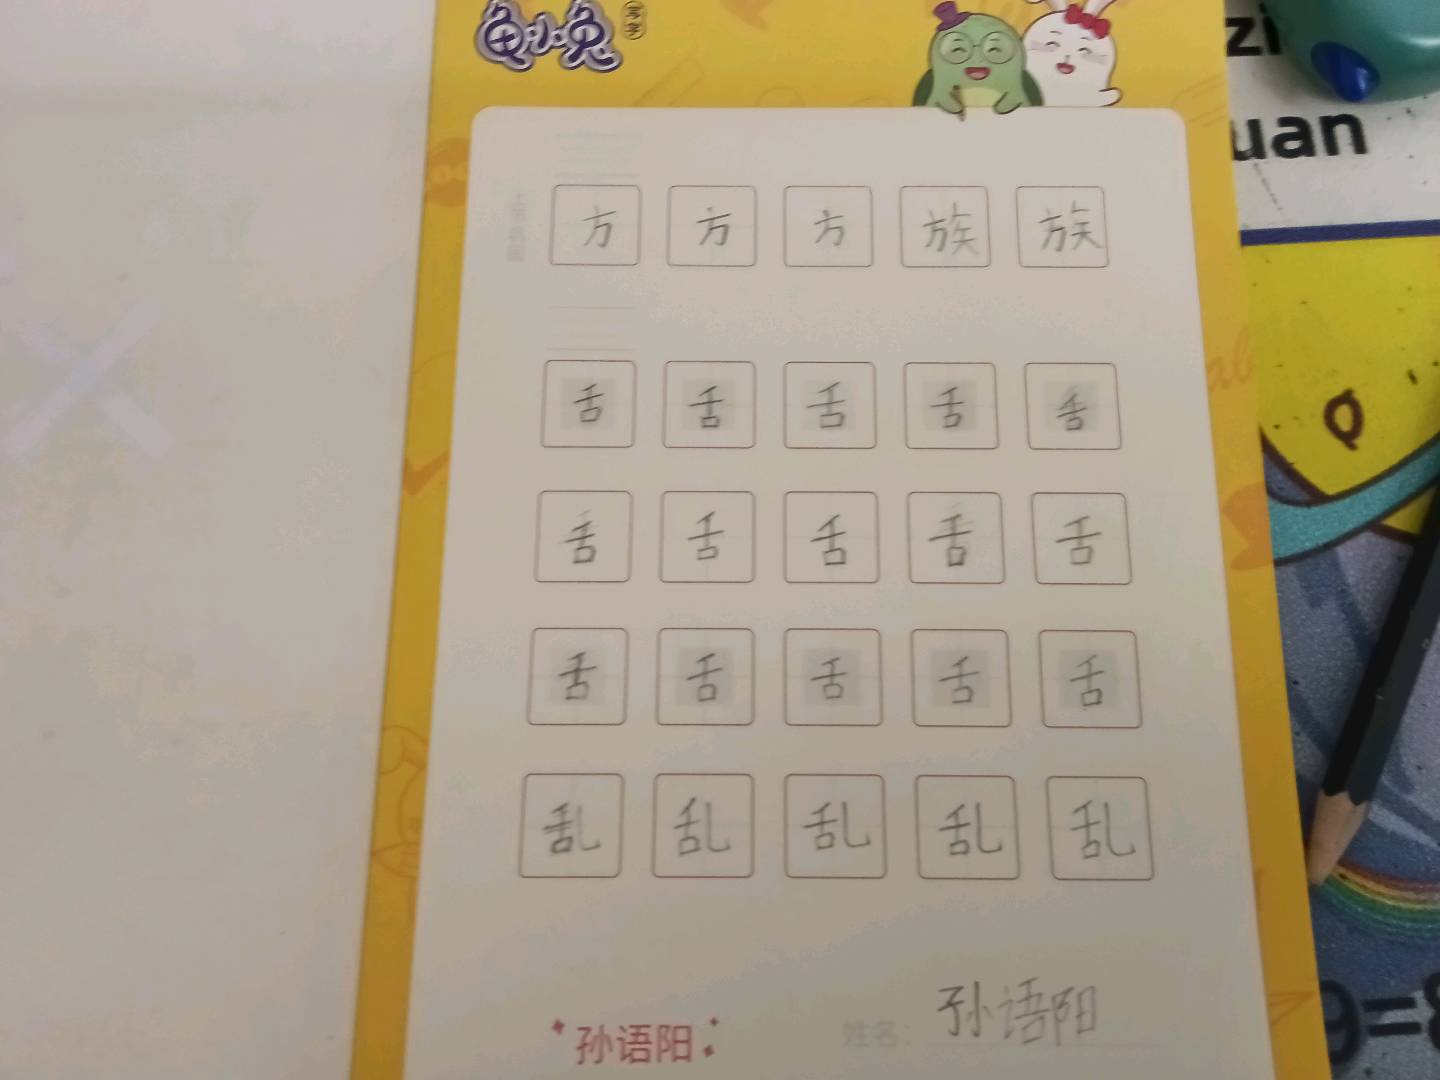 龟小兔
zi
uan
方 方 方 族 族
舌 舌 舌 舌 舌
舌 舌 舌 舌 舌
舌 舌 舌 舌 舌
乱 乱 乱 乱 乱
孙语阳
姓名: 孙语阳
9=8